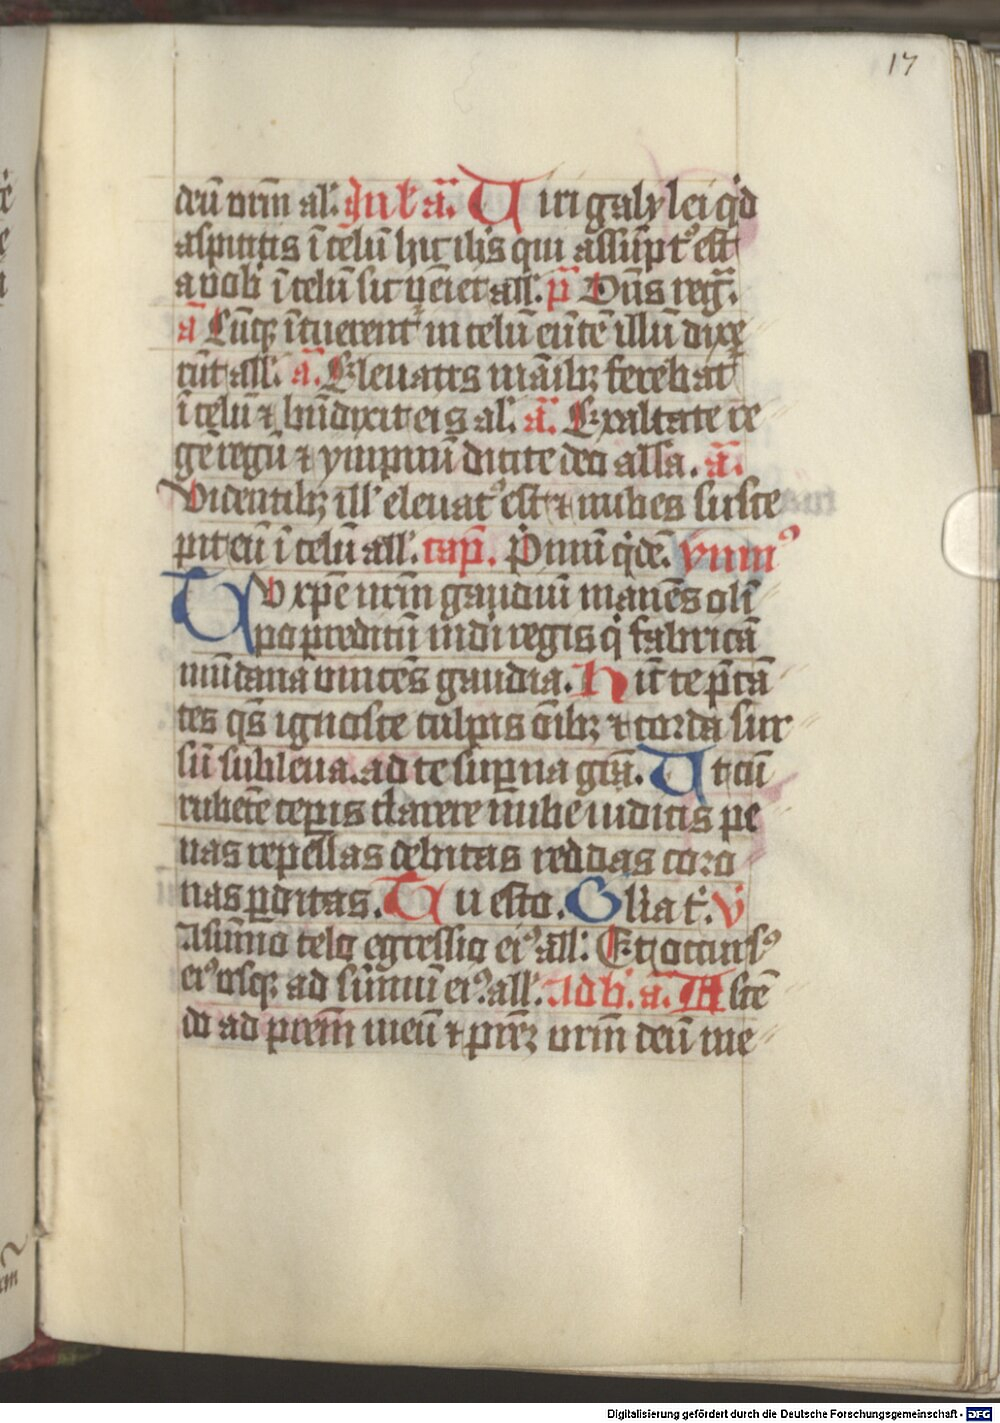 17
deū vrm̄ al'. In l' a̅. Uiri galylei q̇d
aspicitis ī celū hic ih̄s qui assūpt᷒ est
a vob̄ ī celū sic veīet all'. p̄ Dn̄s reg̅.
a̅ Cūq; ītuerent᷑ in celū eūtē illū dixe
rūt all'. a̅. Eleuatis māib; ferebat᷑
ī celū ⁊ bn̄dixit eis al'. a̅. Exaltate re
gē regū ⁊ ympnū dicite deo alla. a̅.
Videntib; ill' eleuat᷒ est ⁊ nubes susce
pit eū ī celū all'. cap̄. Primū q̇dē. ympn᷒
Tu xp̄e nrm̄ gaudiū manēs oli
po preditū mūdi regis q̇ fabricā
mūdana vincēs gaudia. Hīc te p̄cā
tes qs̄ ignosce culpis oīb; ⁊ corda sur
sū subleua. ad te suꝑna grā. Ut cū
rubēte ceꝑis clarere nube iudicis pe
nas repellas debitas reddas coro
nas ꝑditas. Tu esto. Gl'ia t'. v̄
A sūmo celo egressio ei᷒ all'. Et occurs᷒
ei᷒ usq; ad sūmū ei᷒. all'. Ad b̄. a̅. Ascē
do ad prem̄ meū ⁊ prēz vrm̄ deū me
Digitalisierung gefördert durch die Deutsche Forschungsgemeinschaft - DFG